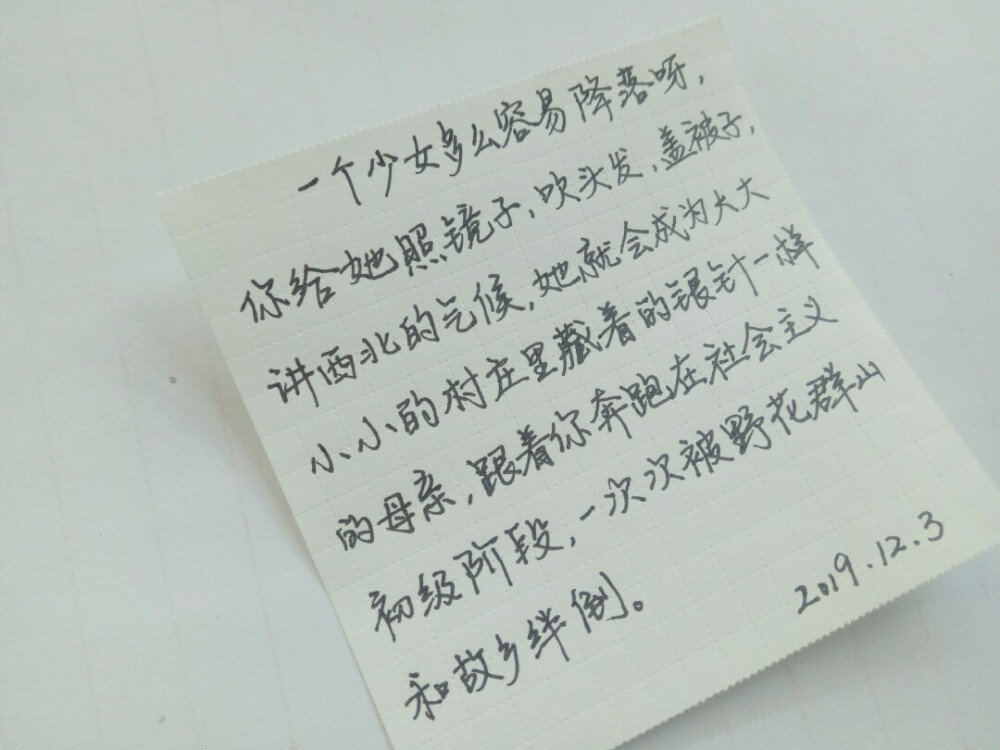 一个少女多么容易降落呀，
你给她照镜子，吹头发，盖被子，
讲西北的气候，她就会成为大大
小小的村庄里藏着的银针一样
的母亲，跟着你奔跑在社会主义
初级阶段，一次次被野花群山
和故乡绊倒。
2019.12.3